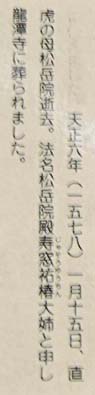 天正六年(一五七八)一月十五日、直
虎の母松岳院逝去。法名松岳院殿寿窓祐椿大姉と申し
じゅそうゆうちん
龍潭寺に葬られました。